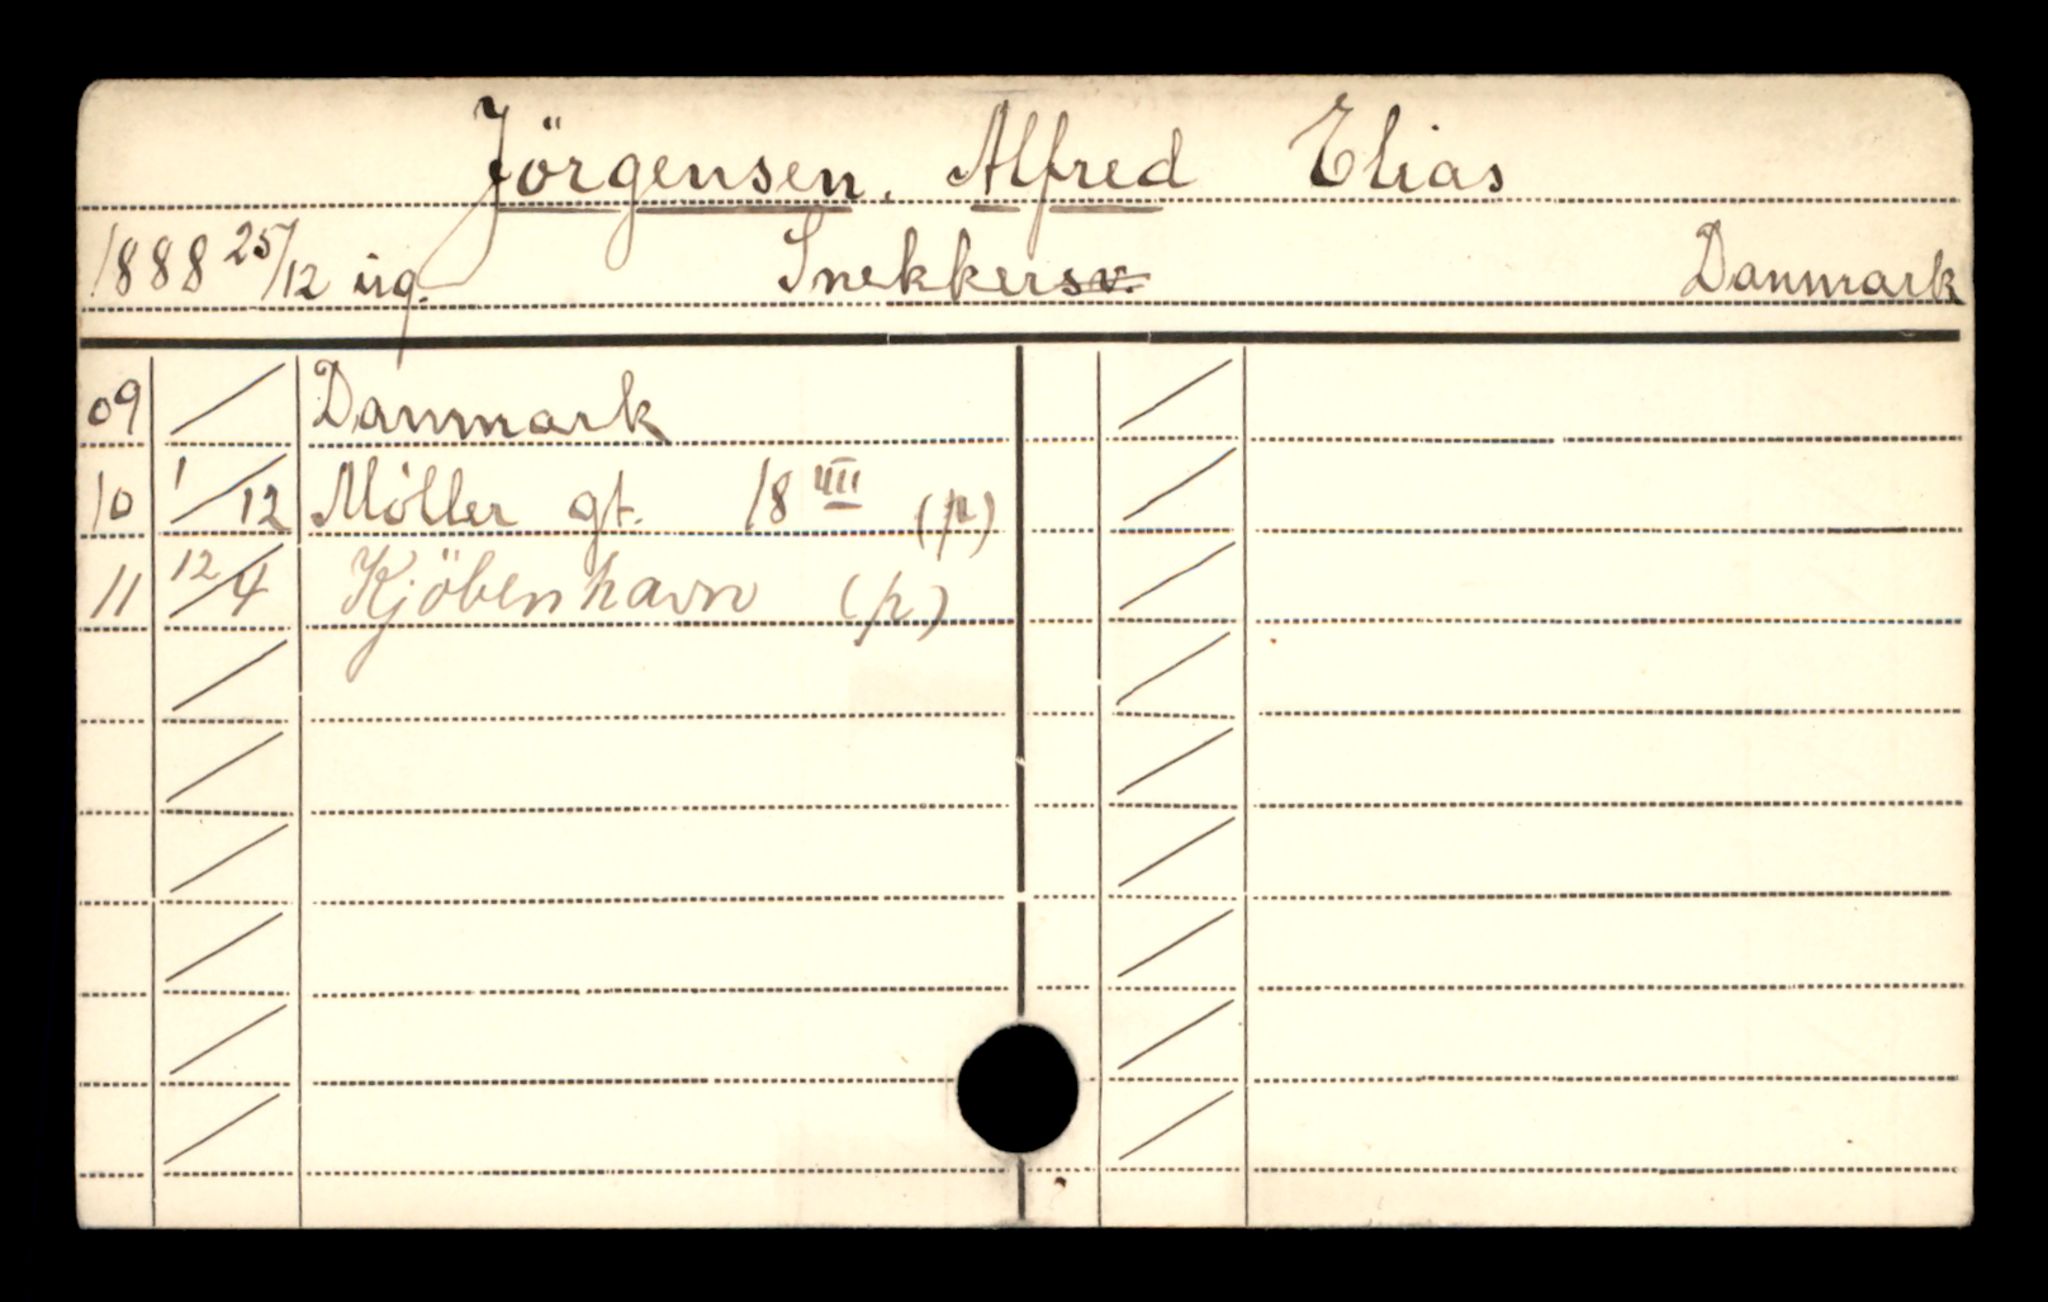 Jörgensen. Alfred Elias
1888 25/12 ug. Snekkersv. Danmark
09 / Danmark
10 1/12 Möller gt. 18 III (p)
11 12/4 Kjöbenhavn (p)